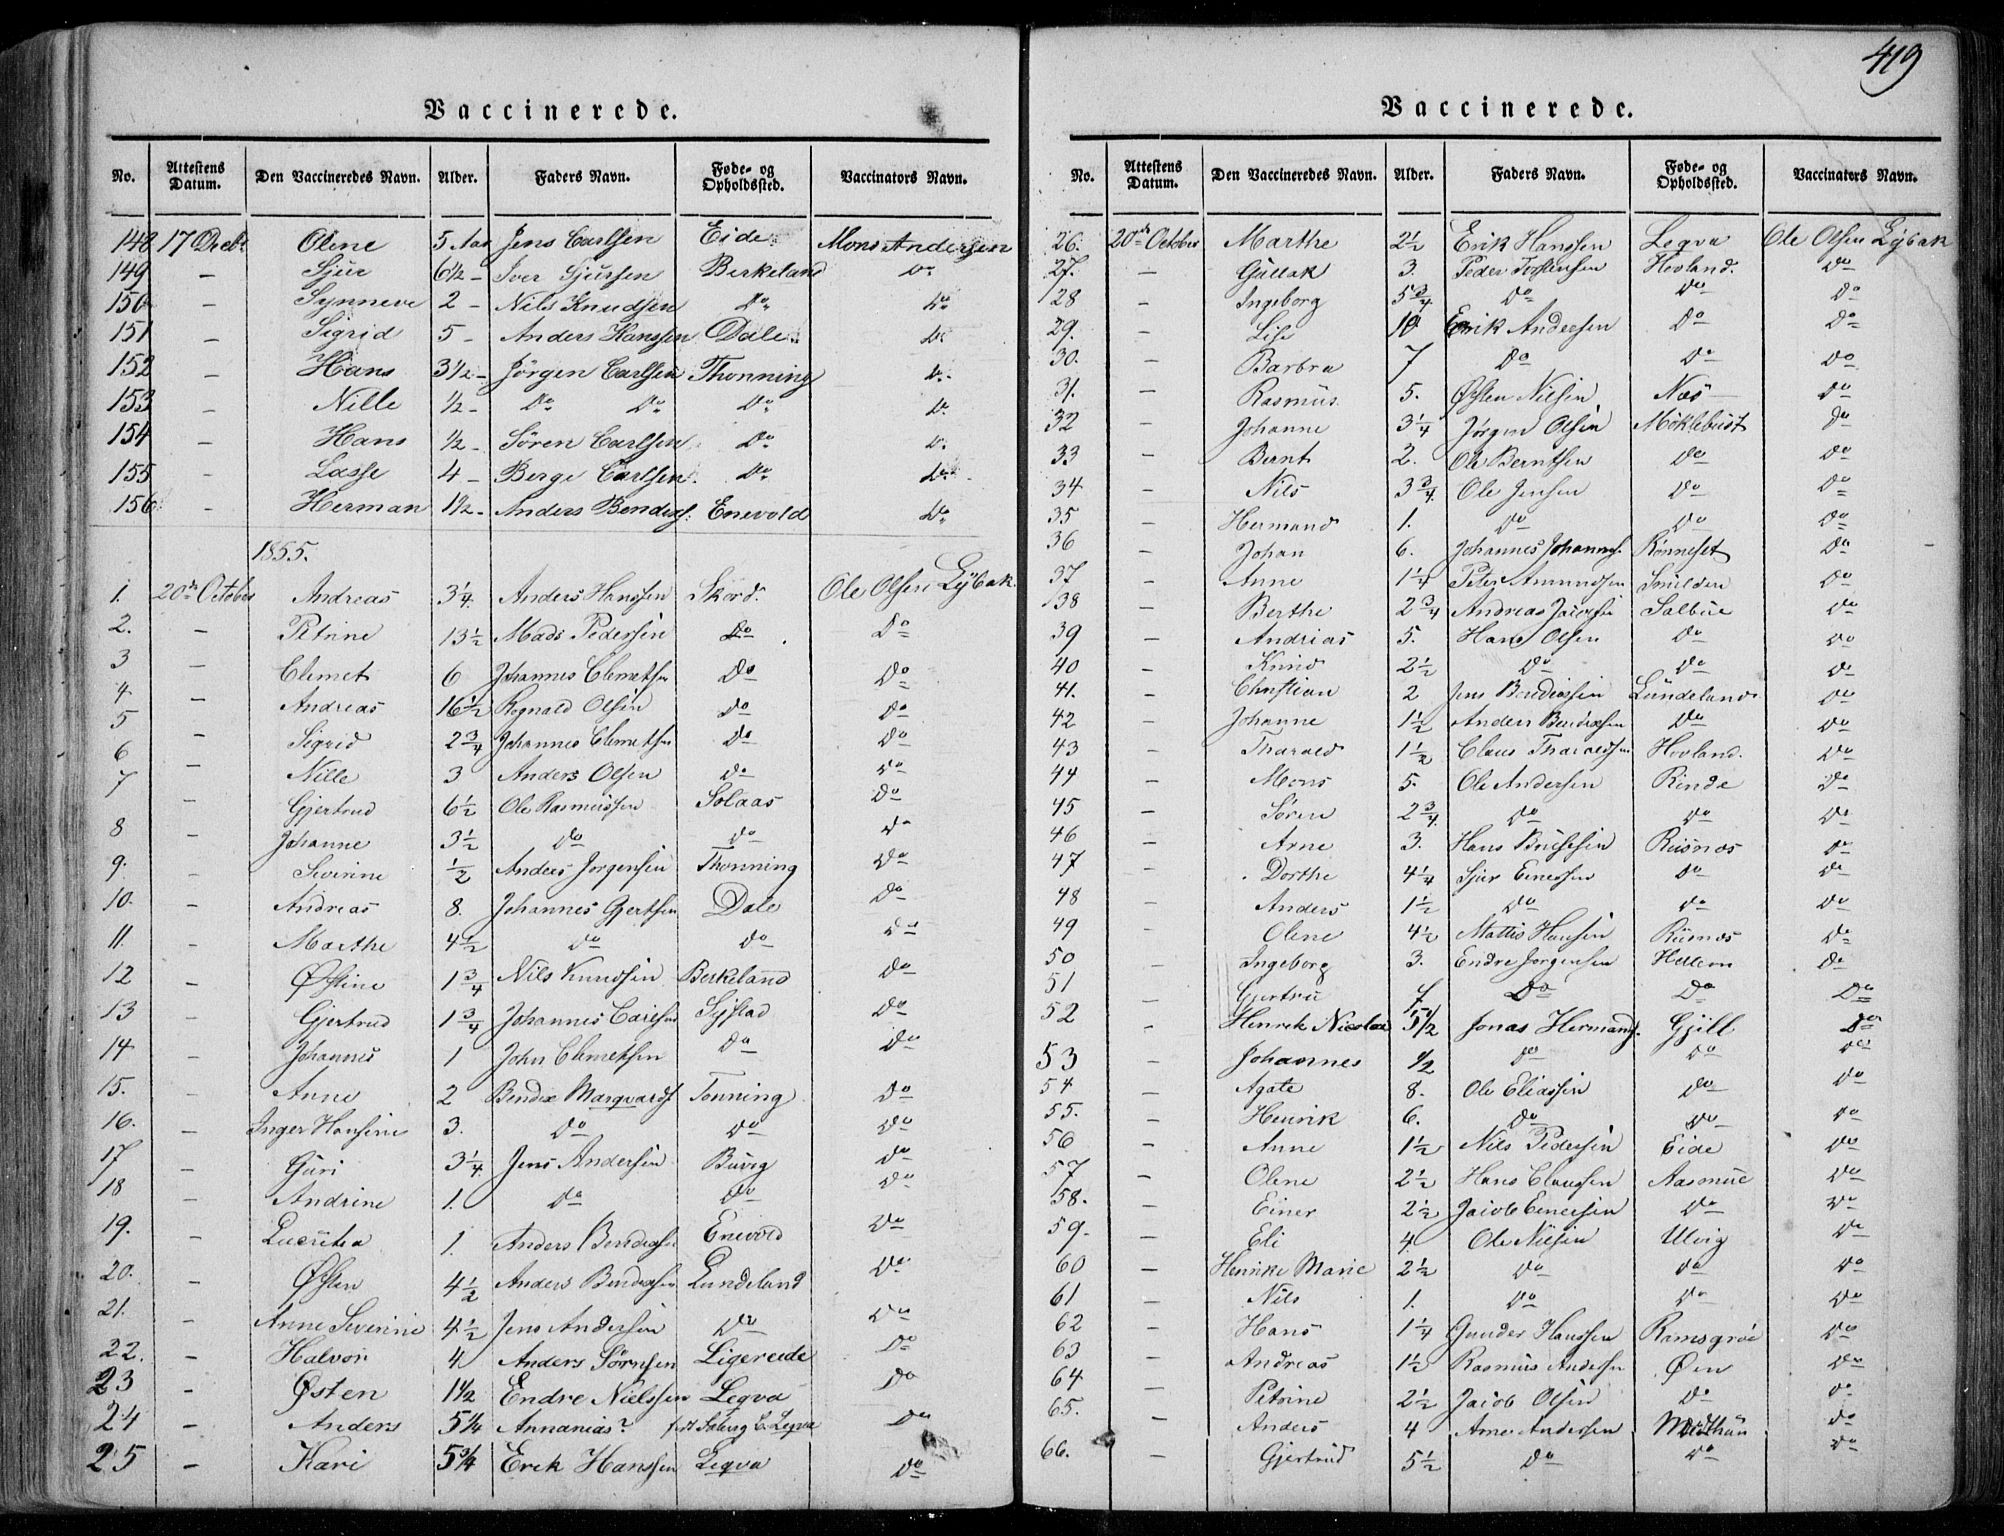 419
Vaccinerede.
No. Attestens Datum. Den Vaccineredes Navn. Alder. Faders Navn. Føde- og Opholdssted. Vaccinators Navn.
148 17 Decbr Olene 5 Aar Jens Carlsen Eide Mons Andersen
149 – Sjur 6 1/2 – Iver Sjursen Berkeland Do
150 – Synneve 2 – Nils Knudsen Do Do
151 – Sigrid 5 – Anders Hanssen Dale Do
152 – Hans 3 1/2 – Jörgen Carlsen Thonning Do
153 – Nille 1/2 – Do Do Do Do
154 – Hans 1/2 – Sören Carlsen Do Do
155 – Lasse 4 – Berge Carlsen Do Do
156 – Herman 1 1/2 – Anders Bendixs: Enevold Do
1855.
1. 20de October Andreas 3 1/4 Anders Hanssen Skord. Ole Olsen Lÿbak
2. – Petrine 13 1/2 Mads Pedersen Do Do
3 – Clemet 6 Johannes Clemetsen Do Do
4 – Andreas 16 1/2 Rognald Olsen Do Do
5 – Sigrid 2 3/4 Johannes Clemetsen Do Do
6 – Nille 3 Anders Olsen Do Do
7 – Gjertrud 6 1/2 Ole Rasmussen Solaas Do
8 – Johanne 3 1/2 Do Do Do
9. – Severine 1/2 Anders Jorgensen Thonning Do
10. – Andreas 8. Johannes Gjertsen Dale Do
11. – Marthe 4 1/2 Do Do Do
12 – Østine 1 3/4 Nils Knudsen Berkeland Do
13 – Gjertrud 1 3/4 Johannes Carlsen Sÿstad Do
14 – Johannes 1 John Clemetsen Do Do
15. – Anne 2 Bendix Marqvards Tonning Do
16. – Inger Hansine 3. Do Do Do
17 – Guri 3 1/4 Jens Andersen Buvig Do
18 – Andrine 1. Do Do Do
19. – Lucritia 1. Anders Bendixsen Enevold Do
20. – Østen 4 1/2 Anders Bendixsen Lundeland Do
21. – Anne Severine 4 1/2 Jens Andersen Do Do
22. – Halvor 4 Anders Sörnsen Ligereide Do
23 – Østen 1 1/2 Endre Nielssen Leqva Do
24 – Anders 5 1/4 Annanias? Leqva Do
25 – Kari 5 3/4 Erik Hanssen Leqva Do
Vaccinerede.
No. Attestens Datum. Den Vaccineredes Navn. Alder. Faders Navn. Føde- og Opholdssted. Vaccinators Navn.
26. 20de October Marthe 2 1/2 Erik Hanssen Leqva Ole Olsen Lÿbak
27. – Gullak 3. Peder Torstensen Hovland. Do
28 – Ingeborg 5 3/4 Do Do Do
29. – Lise 10 Erik Andersen Do Do
30. – Barbra 7 Do Do Do
31. – Rasmus 5. Østen Nilsen Næs Do
32 – Johanne 3 1/4 Jørgen Olsen Möklebust Do
33 – Bernt 2. Ole Berntsen Do Do
34 – Nils 3 3/4 Ole Jensen Do Do
35 – Hermand 1. Do Do Do
36 – Johan 6. Johannes Johanns. Rönneset Do
37 – Anne 1 1/4 Peter Amundsen Smilden Do
38 – Berthe 2 3/4 Andreas Jacobsen Salbue Do
39 – Andrias 5. Hans Olsen Do Do
40 – Knud 2 1/2 Do Do Do
41. – Christian 2 Jens Bendixsen Lundeland Do
42 – Johanne 1 1/2 Anders Bendixsen Do Do
43 – Tharald 1 1/2 Claus Tharaldsen Hovland. Do
44 – Mons 5. Ole Andersen Rinde Do
45 – Sören 2 3/4 Do Do Do
46 – Arne 3. Hans Rusnæs Do
47 – Dorthe 4 1/4 Sjur Einessen Do Do
48 – Anders 1 1/2 Do Do Do
49 – Olene 4 1/2 Mattis Hansen Rusnæs Do
50 – Ingeborg 3. Endre Jorgensen Hellem Do
51 – Gjertru 7 Do Do Do
52 – Henrik Nicolai 5 1/2 Jonas Hermands. Gjill Do
53 – Johannes 1/2 Do Do Do
54 – Agate 8. Ole Eliassen Do Do
55. – Henrik 6. Do Do Do
56 – Anne 1 1/2 Nils Pedersen Eide Do
57 – Olene 2 1/2 Hans Claussen Aasmul Do
58. – Einer 2 1/2 Jacob Einersen Do Do
59. – Eli 4. Ole Nilsen Ulvig Do
60 – Henrike Marie 2 1/2 Do Do Do
61 – Nils 1. Do Do Do
62 – Hans 1 1/4 Gunder Hanssen Ramsgrøe Do
63 – Andreas 1 1/2 Rasmus Andersen Øen Do
64 – Petrine 2 1/2 Jacob Olsen Do Do
65. – Anders 4 Arne Andersen Midthun Do
66. – Gjertrud 5 1/2 Do Do Do